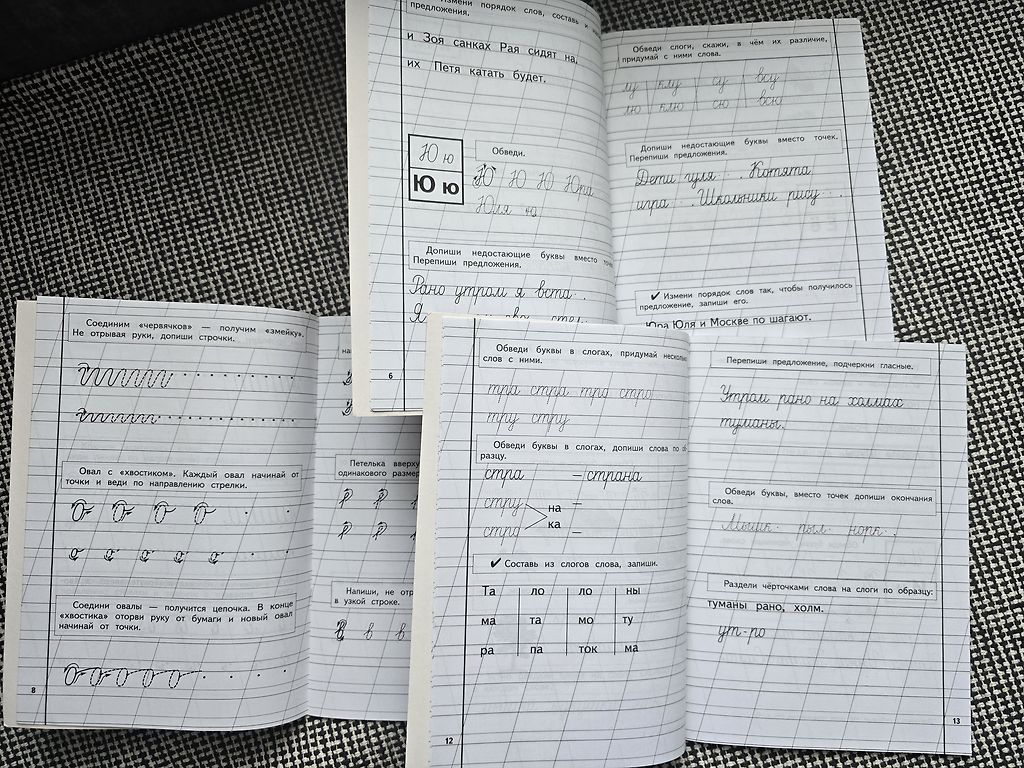 Измени порядок слов, составь и
предложения.
и Зоя санках Рая сидят на,
их Петя катать будет.
Ю ю
Ю ю
Обведи.
Ю Ю Ю Юра
Юля ю
Допиши недостающие буквы вместо точек
Перепиши предложения.
Рано утром я вста . .
Я
6
Обведи слоги, скажи, в чём их различие,
придумай с ними слова.
лу клу су всу
лю клю сю всю
Допиши недостающие буквы вместо точек.
Перепиши предложения.
Дети гуля . . . Котята
игра . . . Школьники рису . . .
✓ Измени порядок слов так, чтобы получилось
предложение, запиши его.
Юра Юля и Москве по шагают.
Соединим «червячков» — получим «змейку».
Не отрывая руки, допиши строчки.
Овал с «хвостиком». Каждый овал начинай от
точки и веди по направлению стрелки.
Соедини овалы — получится цепочка. В конце
«хвостика» оторви руку от бумаги и новый овал
начинай от точки.
8
Петелька вверху
одинакового
Напиши, не
в узкой строке.
Обведи буквы в слогах, придумай
слов с ними.
тра стра тро стро
тру стру
Обведи буквы в слогах, допиши слова по
разцу.
стра – страна
стру на –
стро ка –
✓ Составь из слогов слова, запиши.
Та ло ло ны
ма та мо ту
ра па ток ма
12
Перепиши предложение, подчеркни гласные.
Утром рано на холмах
туманы.
Обведи буквы, вместо точек допиши окончания
слов.
Мышк . пыл . норк . .
Раздели чёрточками слова на слоги по образцу:
туманы рано, холм.
ут-ро
13